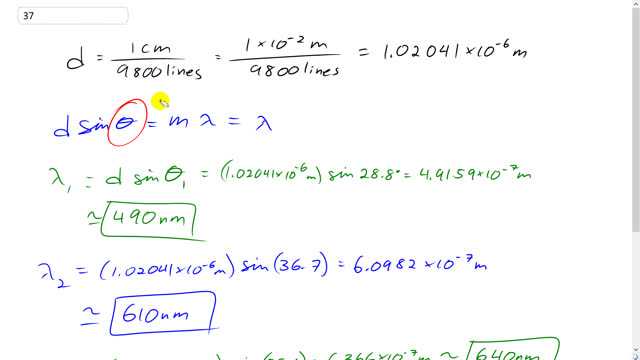 37
d = 1cm / 9800 lines = 1 × 10⁻² m / 9800 lines = 1.02041 × 10⁻⁶ m
d sin θ = m λ = λ
λ₁ = d sin θ₁ = (1.02041×10⁻⁶ m) sin 28.8° = 4.9159×10⁻⁷ m
≃ 490nm
λ₂ = (1.02041×10⁻⁶ m) sin(36.7) = 6.0982 ×10⁻⁷ m
≃ 610nm
≃ 640nm